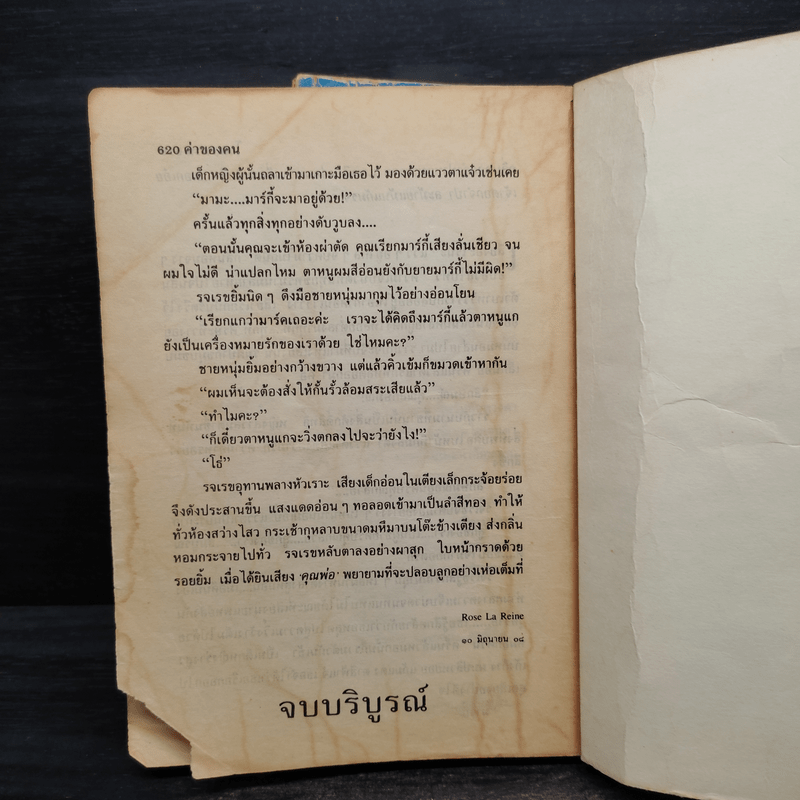 620 ค่าของคน
เด็กหญิงผู้นั้นถลาเข้ามาเกาะมือเธอไว้ มองด้วยแววตาแจ๋วเช่นเคย
“มามะ....มาร์กี้จะมาอยู่ด้วย!”
ครั้นแล้วทุกสิ่งทุกอย่างดับวูบลง....
“ตอนนั้นคุณจะเข้าห้องผ่าตัด คุณเรียกมาร์กี้เสียงลั่นเชียว จน
ผมใจไม่ดี น่าแปลกไหม ตาหนูผมสีอ่อนยังกับยายมาร์กี้ไม่มีผิด!”
รจเรขยิ้มนิด ๆ ดึงมือชายหนุ่มมากุมไว้อย่างอ่อนโยน
“เรียกแกว่ามาร์คเถอะค่ะ เราจะได้คิดถึงมาร์กี้แล้วตาหนูแก
ยังเป็นเครื่องหมายรักของเราด้วย ใช่ไหมคะ?”
ชายหนุ่มยิ้มอย่างกว้างขวาง แต่แล้วคิ้วเข้มก็ขมวดเข้าหากัน
“ผมเห็นจะต้องสั่งให้กั้นรั้วล้อมสระเสียแล้ว”
“ทำไมคะ?”
“ก็เดี๋ยวตาหนูแกจะวิ่งตกลงไปจะว่ายังไง!”
“โธ่”
รจเรขอุทานพลางหัวเราะ เสียงเด็กอ่อนในเตียงเล็กกระจ้อยร่อย
จึงดังประสานขึ้น แสงแดดอ่อน ๆ ทอลอดเข้ามาเป็นลำสีทอง ทำให้
ทั่วห้องสว่างไสว กระเช้ากุหลาบขนาดมหึมาบนโต๊ะข้างเตียง ส่งกลิ่น
หอมกระจายไปทั่ว รจเรขหลับตาลงอย่างผาสุก ใบหน้ากราดด้วย
รอยยิ้ม เมื่อได้ยินเสียง ‘คุณพ่อ’ พยายามที่จะปลอบลูกอย่างเห่อเต็มที่
Rose La Reine
๑๐ มิถุนายน ๐๘
จบบริบูรณ์